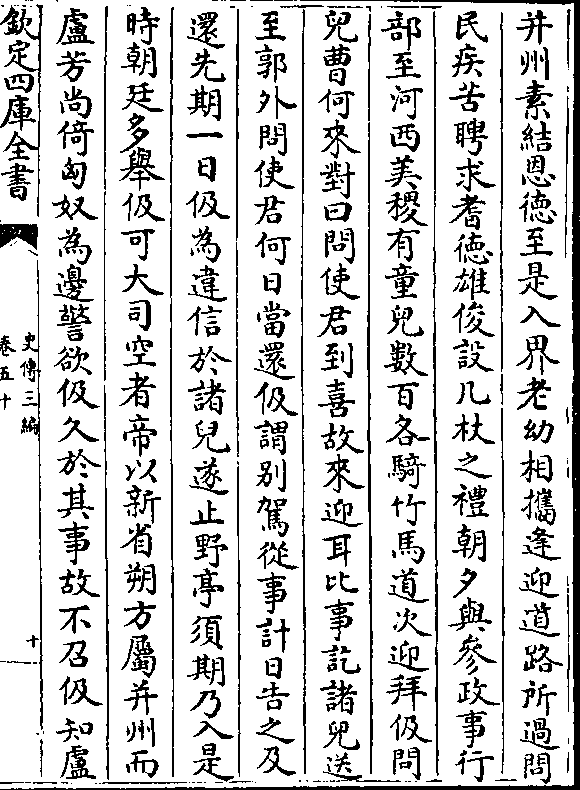 并州素結恩德至是入界老幼相攜逢迎道路所過問
民疾苦聘求耆德雄俊設几杖之禮朝夕與參政事行
部至河西美稷有童兒數百各騎竹馬道次迎拜伋問
兒曹何來對曰問使君到喜故來迎耳比事訖諸兒送
至郭外問使君何日當還伋謂别駕從事計日告之及
還先期一日伋為違信於諸兒遂止野亭須期乃入是
時朝廷多舉伋可大司空者帝以新省朔方屬并州而
盧芳尚倚匈奴為邊警欲伋久於其事故不召伋知盧
欽定四庫全書
史傳三編
卷五十
十